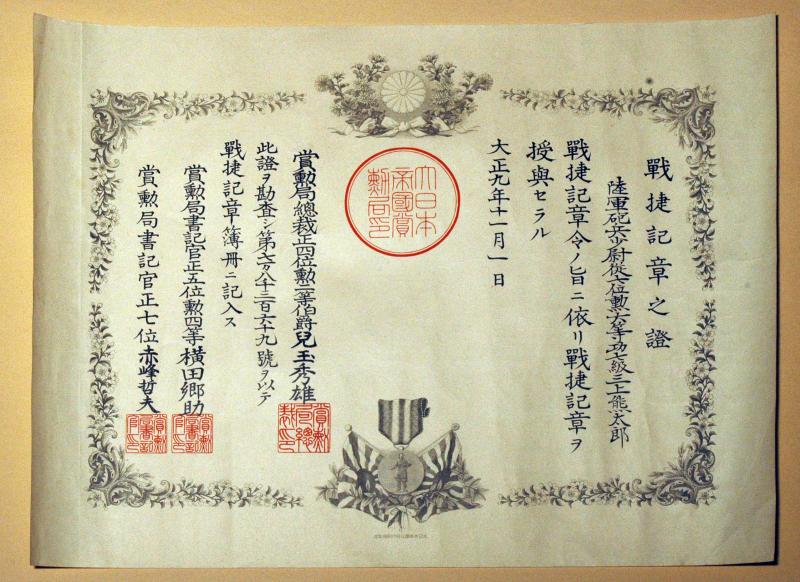 戰捷記章之證
陸軍砲兵少尉從七位勲六等功七級三上熊太郎
戰捷記章令ノ旨ニ依リ戰捷記章ヲ
授與セラル
大正九年十一月一日
大日本
帝國賞
勲局印
賞勲局總裁正四位勲二等伯爵兒玉秀雄
此證ヲ勘査シ第六万八千三百六十九號ヲ以テ
戰捷記章簿冊ニ記入ス
賞勲局書記官正五位勲四等橫田郷助
賞勲局書記官正七位赤峰哲夫